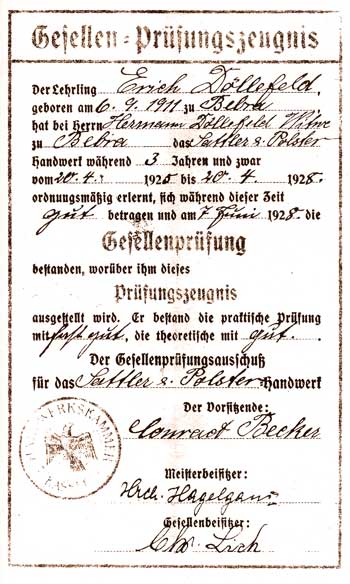 Gesellen-Prüfungszeugnis
Der Lehrling Erich Döllefeld,
geboren am 6. 9. 1911 zu Bebra
hat bei Herrn Hermann Döllefeld Witwe
zu Bebra das Sattler & Polster
Handwerk während 3 Jahren und zwar
vom 20. 4. 1925 bis 20. 4. 1928.
ordnungsmäßig erlernt, sich während dieser Zeit
gut betragen und am 7 Juni 1928 die
Gesellenprüfung
bestanden, worüber ihm dieses
Prüfungszeugnis
ausgestellt wird. Er bestand die praktische Prüfung
mit fast gut, die theoretische mit gut.
Der Gesellenprüfungsausschuß
für das Sattler & Polster-Handwerk
HANDWERKSKAMMER
KASSEL
Der Vorsitzende:
Conrad Becker
Meisterbeisitzer:
Hrch. Hagelgans
Gesellenbeisitzer:
Chr. Lich